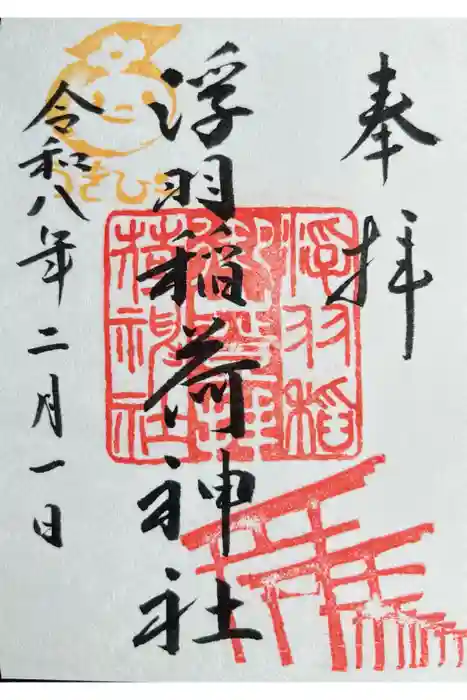 奉拝
浮羽稲荷神社
令和八年二月一日
浮羽稲
荷神社